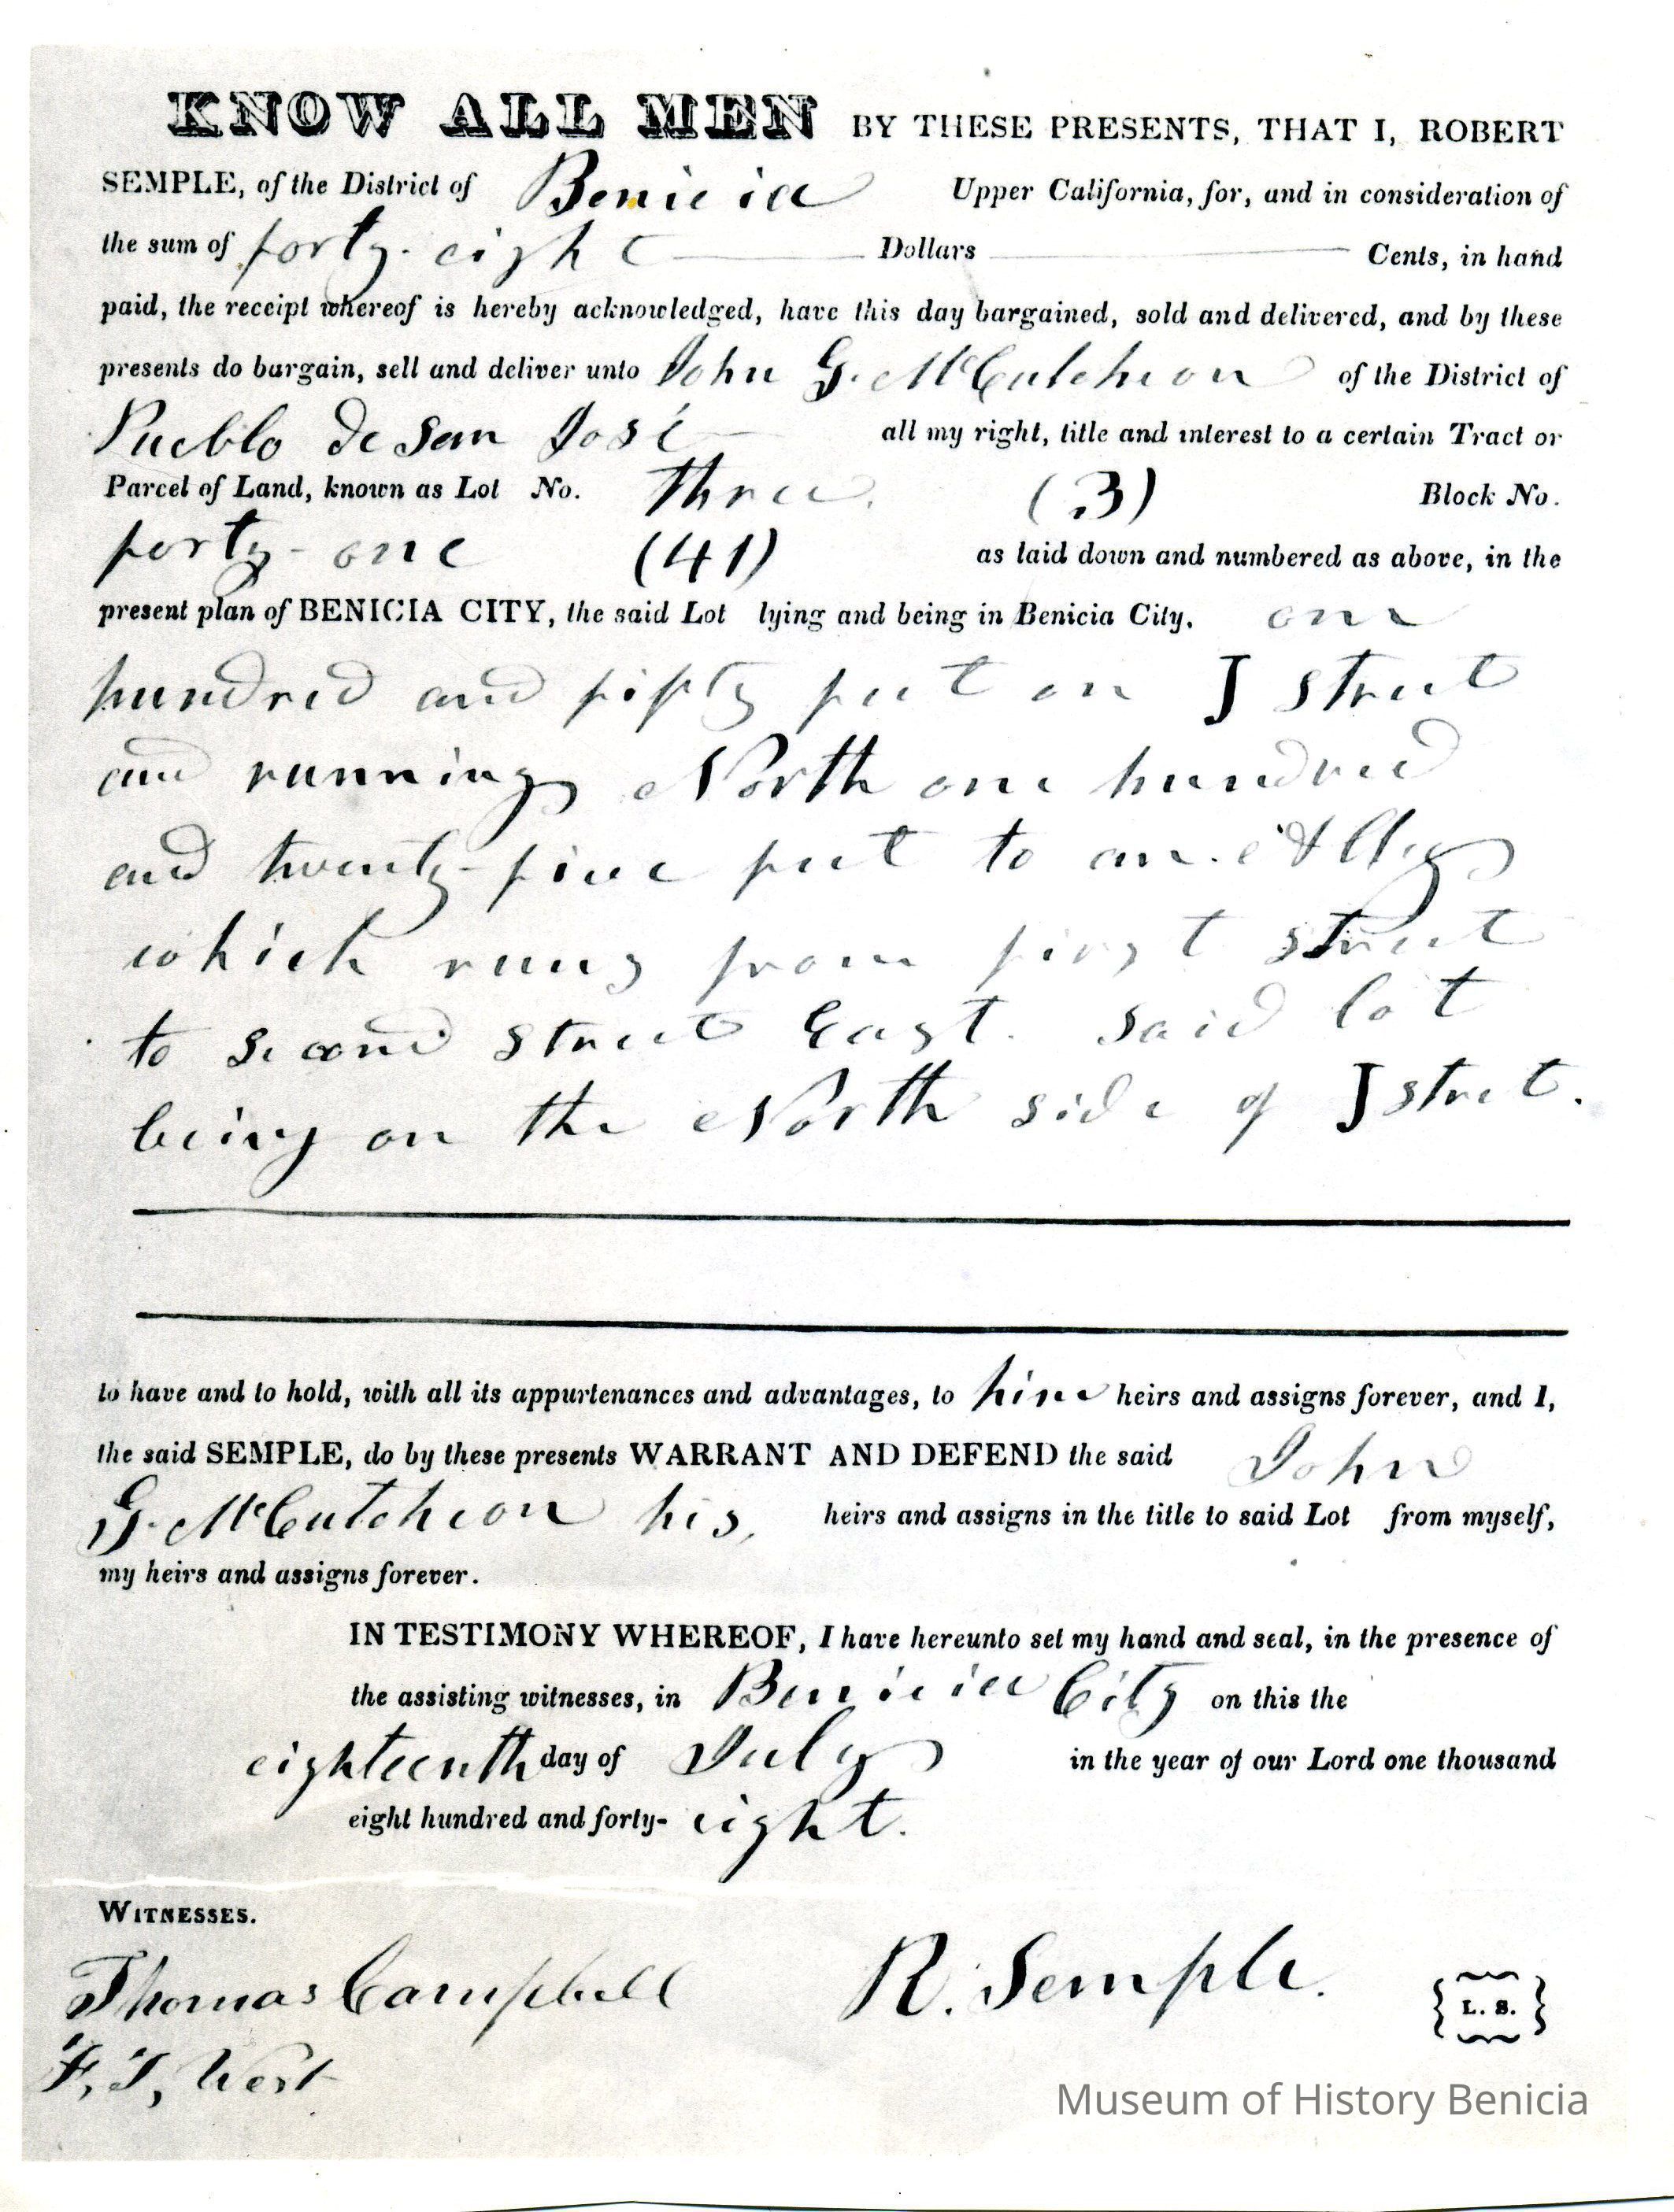 KNOW ALL MEN BY THESE PRESENTS, THAT I, ROBERT
SEMPLE, of the District of Benicia Upper California, for, and in consideration of
the sum of forty-eight Dollars Cents, in hand
paid, the receipt whereof is hereby acknowledged, have this day bargained, sold and delivered, and by these
presents do bargain, sell and deliver unto John G. McCutcheon of the District of
Pueblo de San José all my right, title and interest to a certain Tract or
Parcel of Land, known as Lot No. three (3) Block No.
forty-one (41) as laid down and numbered as above, in the
present plan of BENICIA CITY, the said Lot lying and being in Benicia City, one
hundred and fifty feet on J street
and running North one hundred
and twenty-five feet to an Alley
which runs from first street
to second street East. said lot
being on the North side of J street.
to have and to hold, with all its appurtenances and advantages, to him heirs and assigns forever, and I,
the said SEMPLE, do by these presents WARRANT AND DEFEND the said John
G. McCutcheon his, heirs and assigns in the title to said Lot from myself,
my heirs and assigns forever.
IN TESTIMONY WHEREOF, I have hereunto set my hand and seal, in the presence of
the assisting witnesses, in Benicia City on this the
eighteenth day of July in the year of our Lord one thousand
eight hundred and forty-eight.
WITNESSES.
Thomas Campbell R. Semple. L. S.
F. T, West
Museum of History Benicia